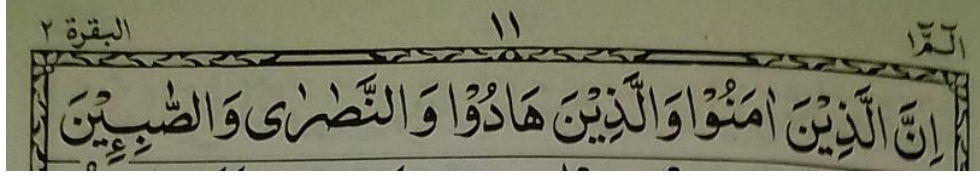 الٓمّٓ ١ ١١ البقرة ٢
اِنَّ الَّذِيْنَ اٰمَنُوْا وَالَّذِيْنَ هَادُوْا وَالنَّصٰرٰى وَالصّٰبِـِٕيْنَ